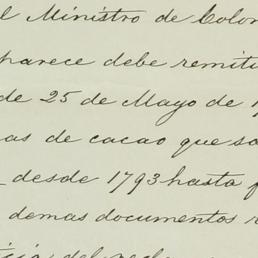 l Ministro de Colon
parece debe remitir
de 25 de Mayo de 1
as de cacao que sa
desde 1793 hasta f
demas documentos r